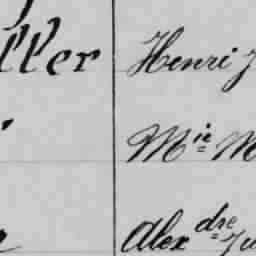 ller Henri J
M^ie M
Alex^dre Ju